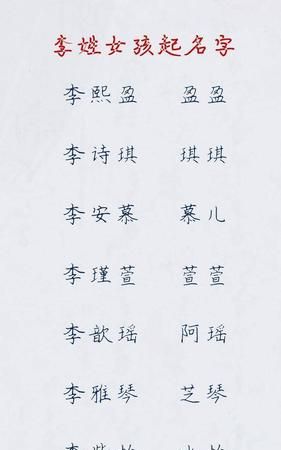 李姓女孩起名字
李熙盈 盈盈
李诗琪 琪琪
李安慕 慕儿
李瑾萱 萱萱
李歆瑶 阿瑶
李雅琴 芝琴
李